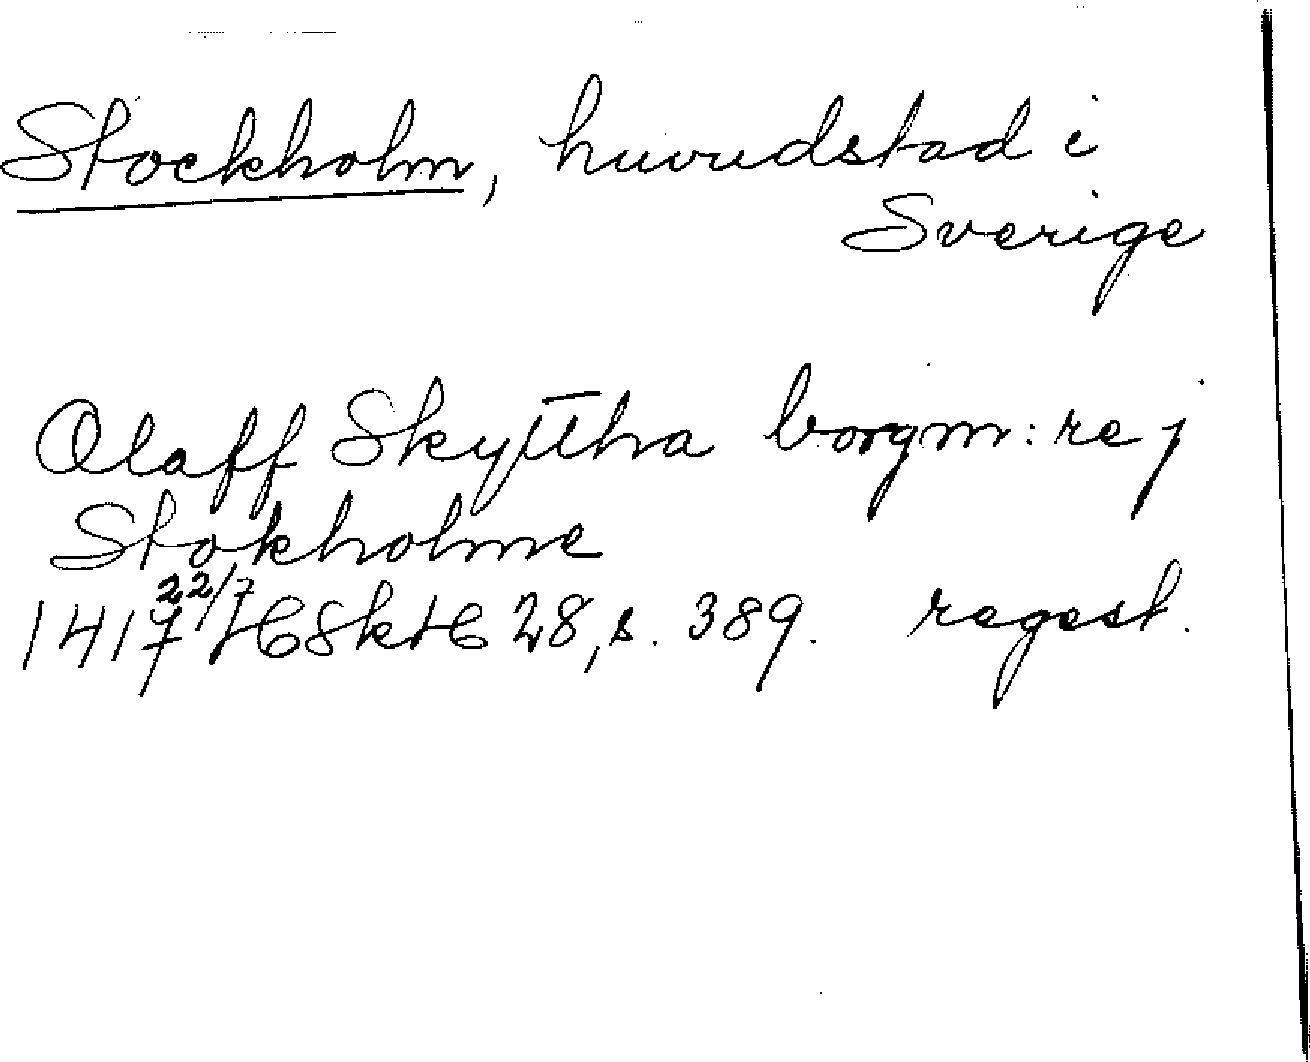 Stockholm, huvudstad i
Sverige
Olaff Skyttha borgm:re j
Stokholme
1417 22/7 HSkH 28, s. 389. regest.